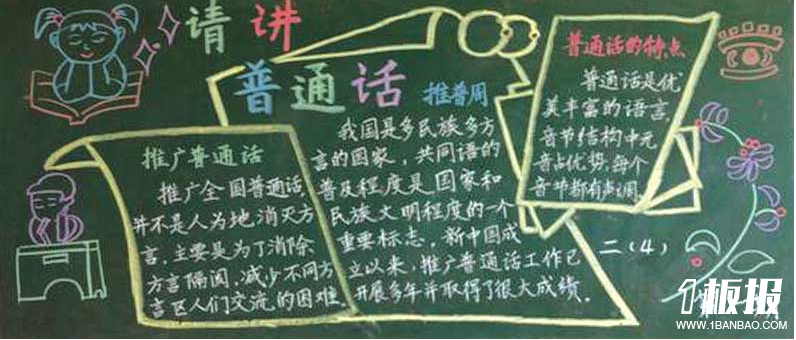 请讲
普通话 推普周
推广普通话
推广全国普通话,
并不是人为地消灭方
言,主要是为了消除
方言隔阂,减少不同方
言区人们交流的困难.
我国是多民族多方
言的国家,共同语的
普及程度是国家和
民族文明程度的一个
重要标志,新中国成
立以来,推广普通话工作已
开展多年并取得了很大成绩.
普通话的特点
普通话是优
美丰富的语言.
音节结构中元
音占优势,每个
音节都有声调.
二(4)
1板报
WWW.1BANBAO.COM